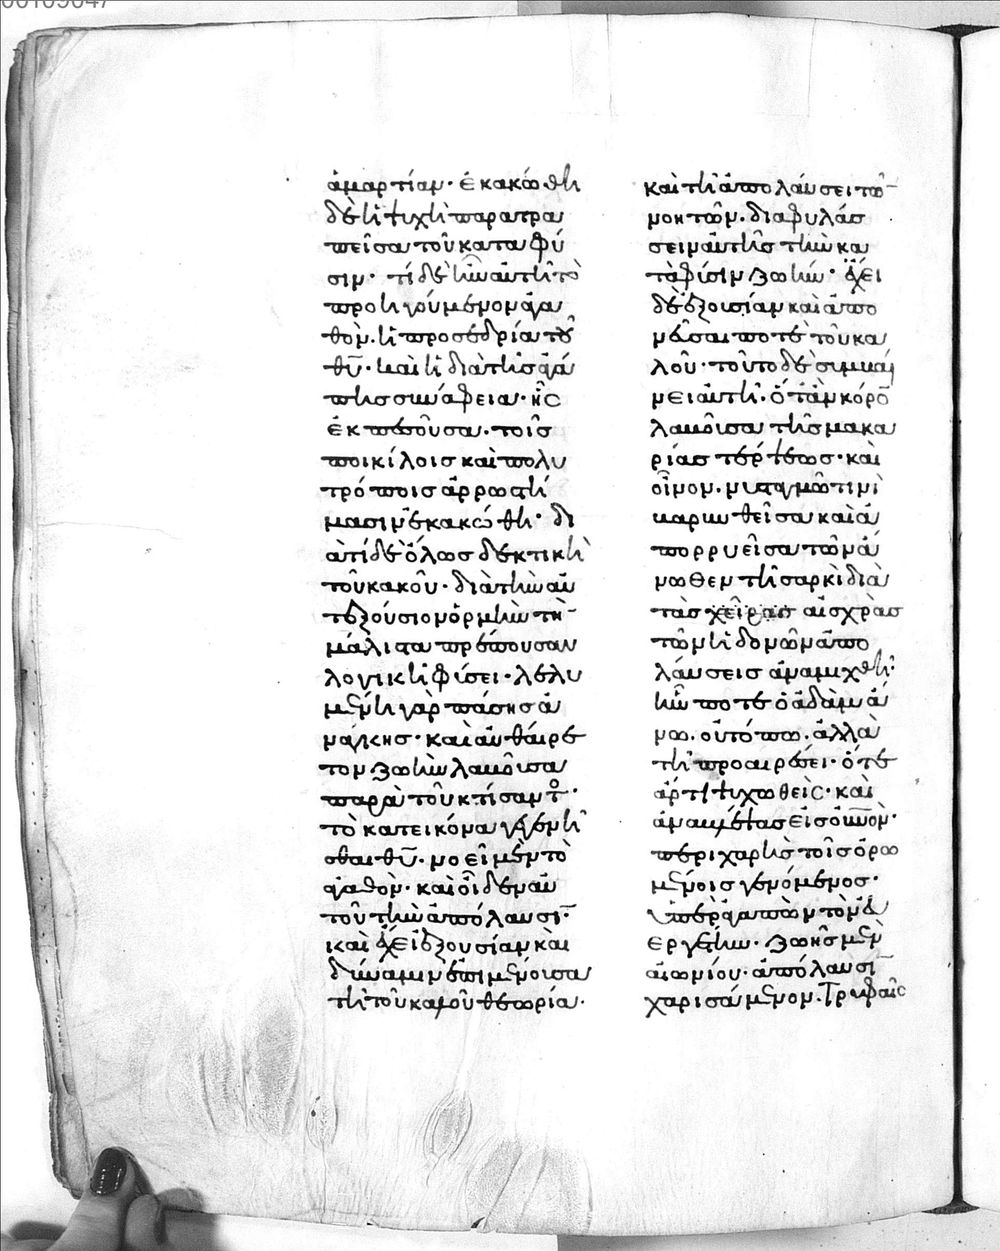 00109047
ἁμαρτίαν· ἐκακώθη
δὲ ἡ ψυχὴ παρατρα
πεῖσα τοῦ κατα φύ
σιν· τί δὲ ἦν αὐτῆ τὸ
προηγούμενον ἀγα
θὸν. ἡ προσεδρία τοῦ
θῦ. καὶ ἡ διὰ τῆς ἀγά
πης συνάφεια· ἧς
ἐκπεσοῦσα. τοῖς
ποικίλοις καὶ πολυ
τρόποις ἀρρωστή
μασιν ἐκακώθη· δι
ὰ τί δὲ ὅλως δεκτικὴ
τοῦ κακοῦ· διὰ τὴν αὐ
τεξούσιον ὁρμὴν τὴν
μάλιστα πρέπουσαν
λογικῆ φύσει· λελυ
μένη γὰρ πάσης ἀ
νάγκης· καὶ αὐθαίρε
τον ζωὴν λαβοῦσα
παρὰ τοῦ κτίσαντος·
τὸ κατ εικόνα γεγενῆ
σθαι θῦ. νοεῖ μὲν τὸ
ἀγαθὸν· καὶ οἶδεν αὐ
τοῦ τὴν ἀπόλαυσιν·
καὶ ἔχει ἐξουσίαν καὶ
δύναμιν ἐπιμένουσα
τῆ τοῦ καλοῦ θεωρία·
καὶ τῆ ἀπολαύσει τῶν
νοητῶν. διαφυλάσ
σειν αὐτῆς τὴν κα
τὰ φύσιν ζωήν· ἔχει
δὲ ἐξουσίαν καὶ ἀπο
νεῦσαι ποτὲ τοῦ κα
λοῦ· τοῦτο δὲ συμβαί
νει αὐτῆ. ὅτ ἂν κόρον
λαβοῦσα τῆς μακα
ρίας τέρψεως· καὶ
οἷον. νυσταγμῶ τινὶ
βαρυνθεῖσα καὶ ἀ
πορρυεῖσα τῶν ἄ
νωθεν τῆ σαρκὶ διὰ
τὰς αἰσχρὰς
τῶν ἡδονῶν ἀπο
λαύσεις ἀναμιχθῆ·
ἦν ποτε ὁ ἀδὰμ ἄ
νω. οὐ τόπω. ἀλλὰ
τῆ προαιρέσει· ὅτε
ἄρτι ψυχωθεὶς· καὶ
ἀναβλέψας εἰς οὐνὸν·
περιχαρὴς τοῖς ὁρω
μένοις γενόμενος·
ὑπεραγαπῶν τὸν εὐ
εργέτην. ζωῆς μὲν
αἰωνίου· ἀπόλαυσιν
χαρισάμενον. τρυφαῖς